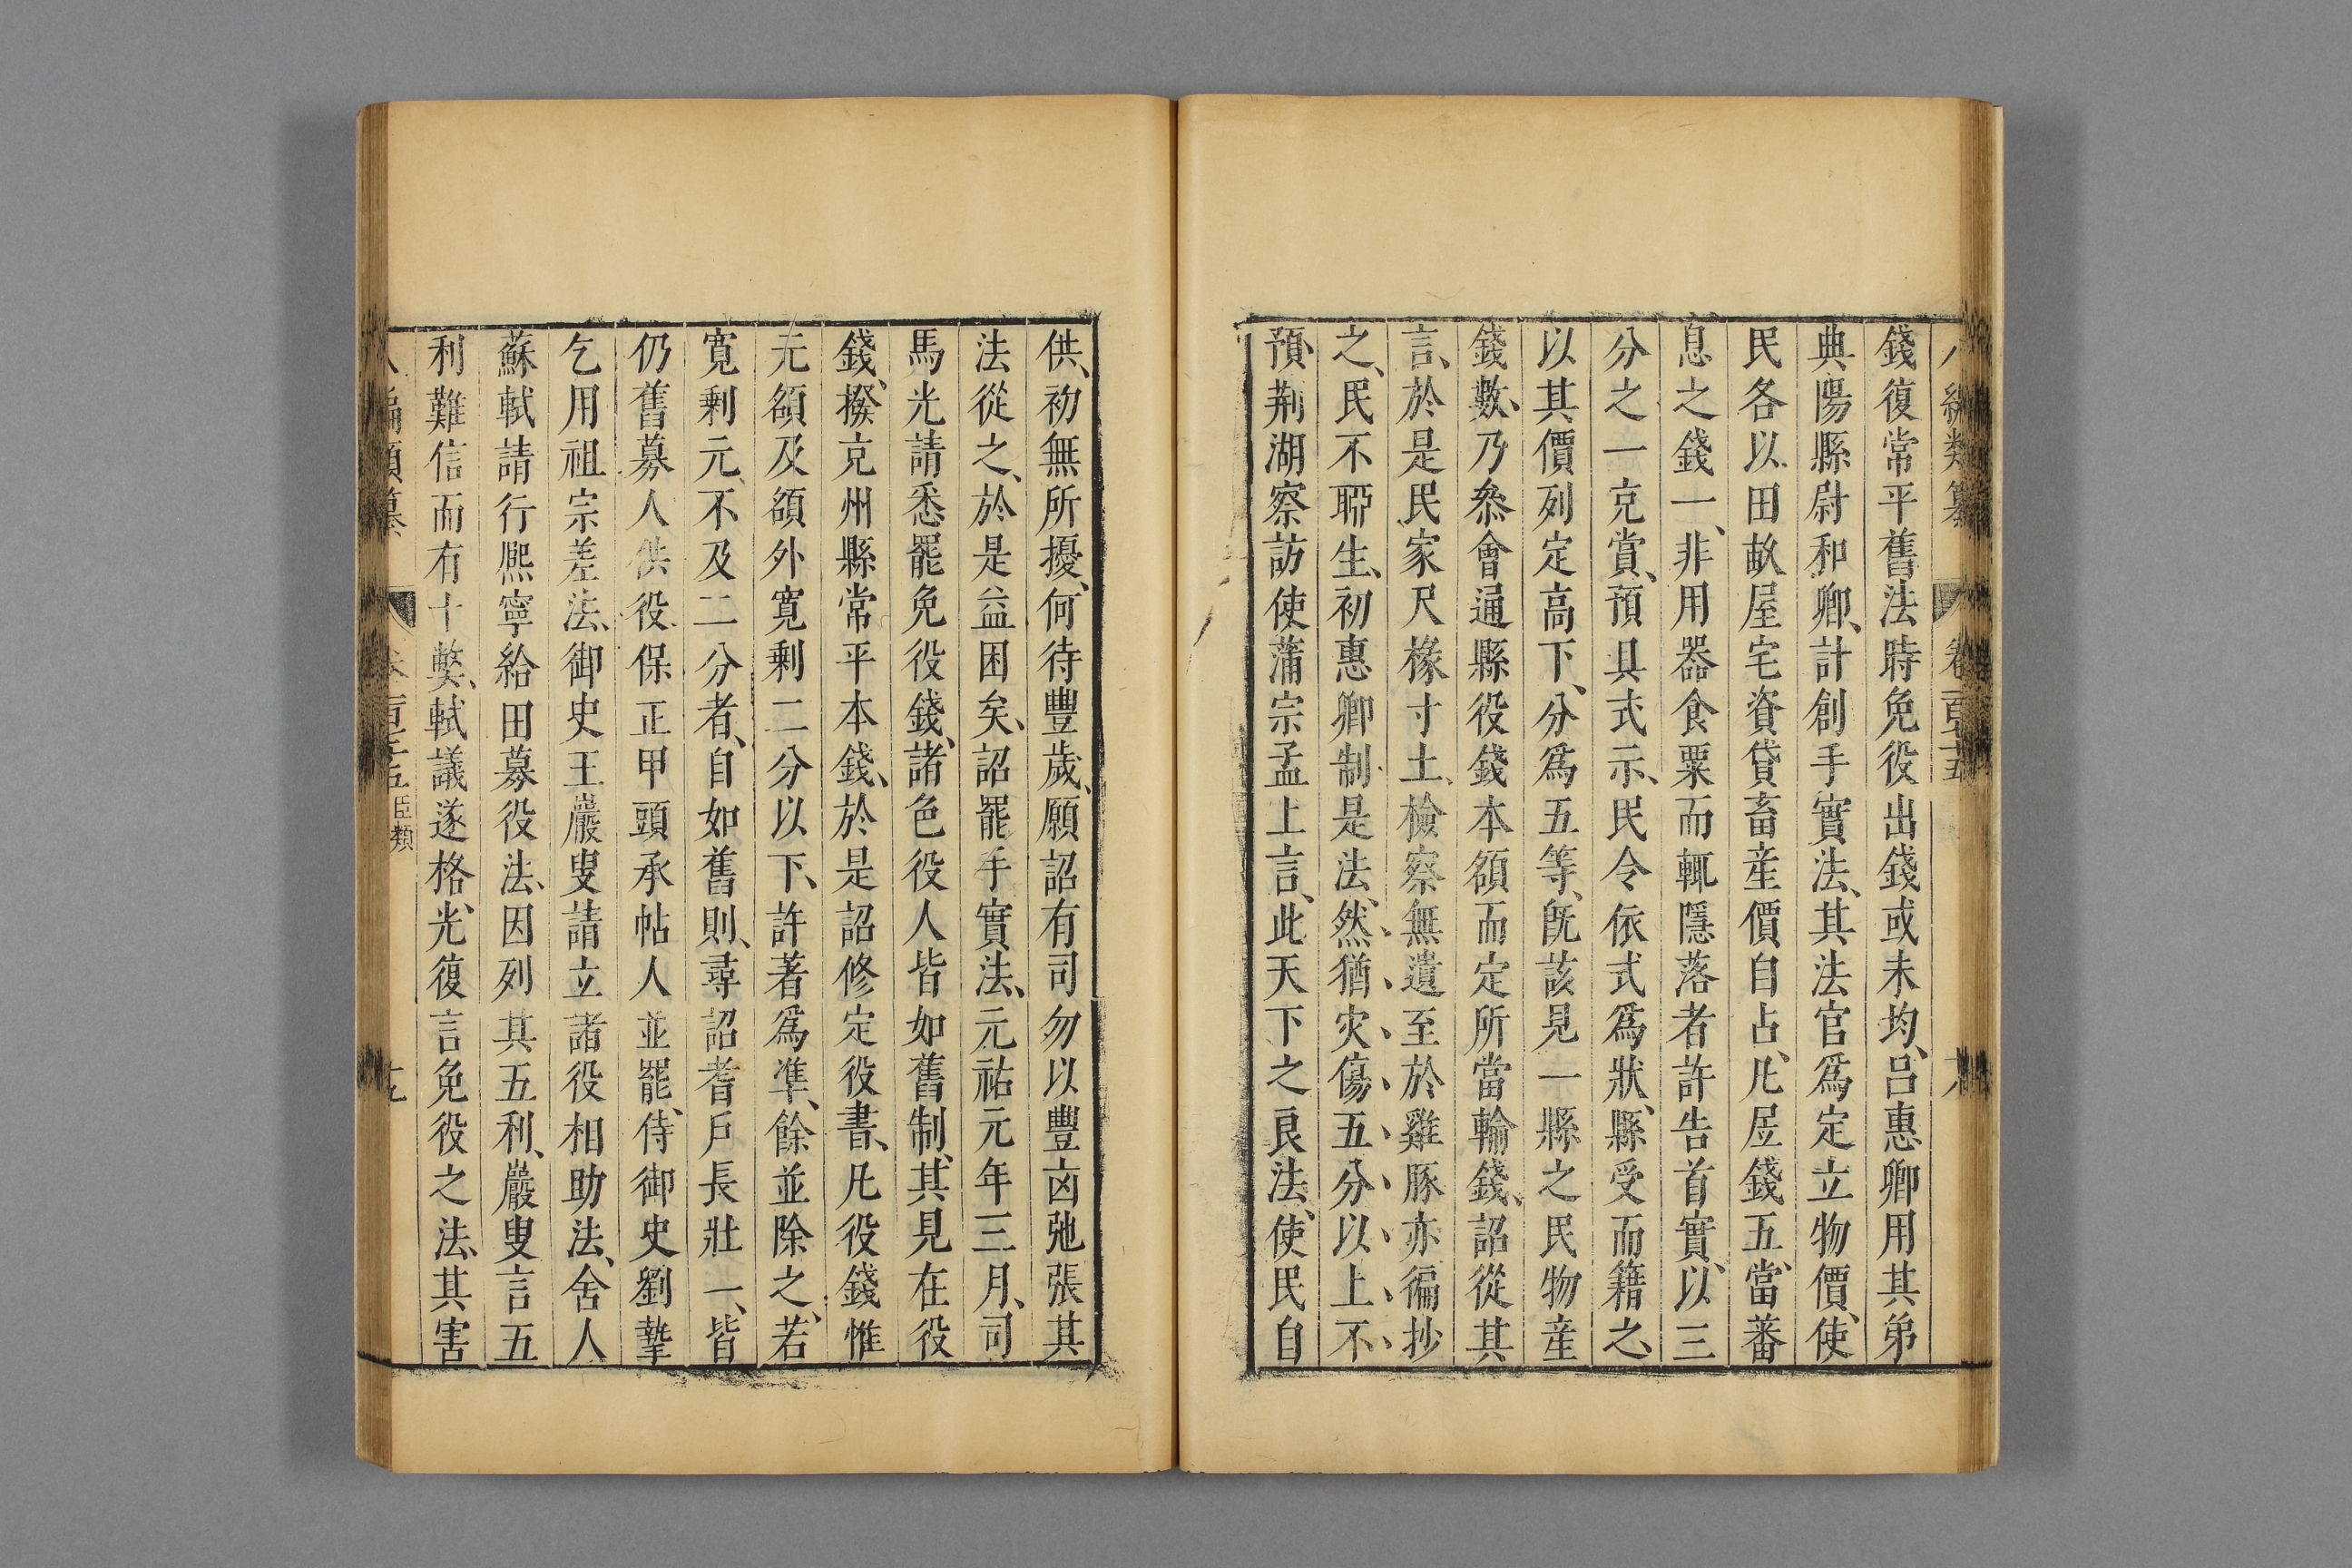 編類纂 卷
錢復常平舊法時免役出錢或未均、呂惠卿用其弟
典陽縣尉和卿、計創手實法、其法官爲定立物價、使
民各以田畝屋宅資貸畜産價自占、凡居錢五、當蕃
息之錢一、非用器食粟而輒隱落者許告首實、以三
分之一充賞、預具式示、民令依式爲狀、縣受而籍之、
以其價列定高下、分爲五等、旣該見一縣之民物産
錢數、乃叅會通縣役錢本額而定所當輸錢、詔從其
言、於是民家尺椽寸土、檢察無遺至於雞豚亦徧抄
之、民不聊生、初惠卿制是法、然猶灾傷五分以上不
預、荆湖察訪使蒲宗孟上言、此天下之良法、使民自
供、初無所擾、何待豐歲、願詔有司勿以豐凶弛張其
法從之、於是益困矣、詔罷手實法、元祐元年三月、司
馬光請悉罷免役錢、諸色役人皆如舊制、其見在役
錢、撥充州縣常平本錢、於是詔修定役書、凡役錢惟
元額及額外寬剩二分以下、許著爲準、餘並除之、若
寬剩元不及二分者、自如舊則、尋詔耆戶長壯一、皆
仍舊募人供役保正甲頭承帖人並罷、侍御史劉摯
乞用祖宗差法、御史王巖叟請立諸役相助法、舍人
蘇軾請行熈寧給田募役法、因列其五利、巖叟言五
利難信而有十獘、軾議遂格、光復言免役之法、其害
編類纂 卷百 五 臣類